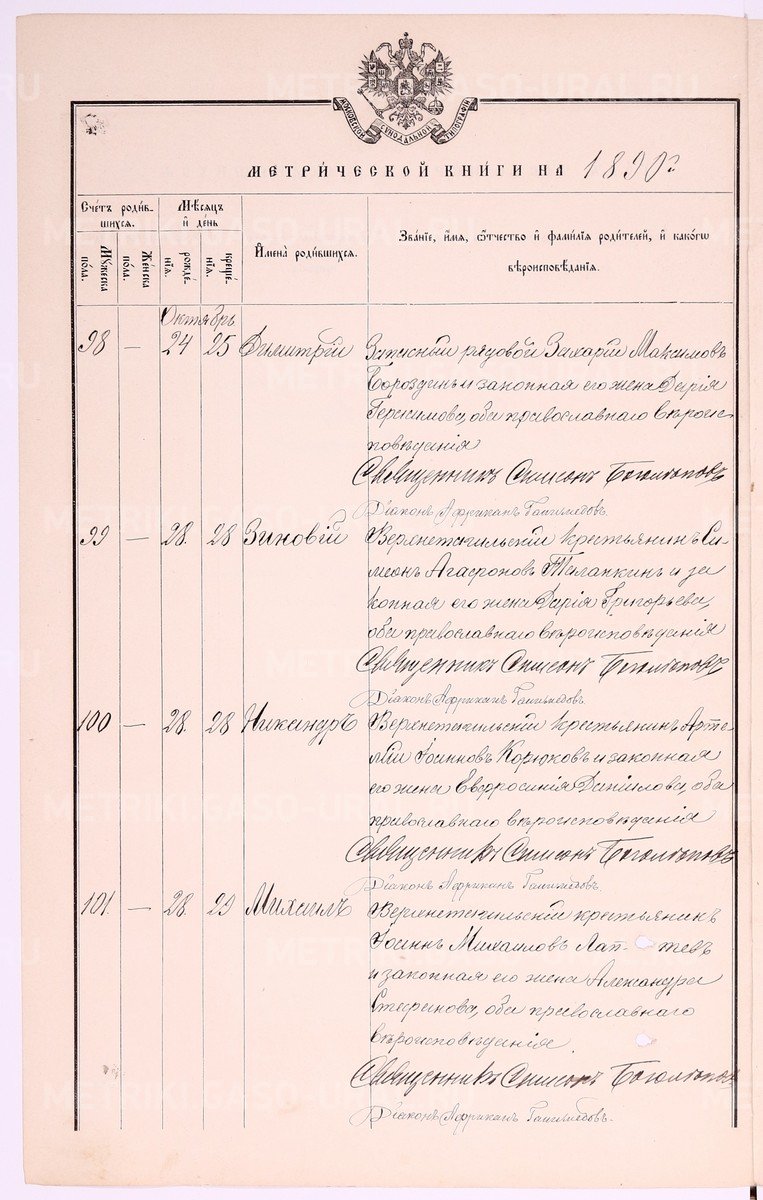 МОСКОВСКОЙ СѴНОДАЛЬНОЙ ТИПОГРАФІИ
МЕТРИ́ЧЕСКОЙ КНИ́ГИ НА 1890 г.
Сче́тъ роди́в-
шихся.
Мꙋжеска
по́ла.
Же́нска
по́ла.
Мѣ́сяцъ
и҆ де́нь
рожде́-
нїѧ.
креще́-
нїѧ.
И҆мена̀ роди́вшихся.
Зва́нїе, и҆́мя, ѻ҆́тчество и҆ фами́лїя роди́телей, и҆ како́гѡ
вѣроисповѣ́данїя.
Октябрь
98 — 24 25 Димитрій Запасный рядовой Захарій Максимовъ
Бороздинъ и законная его жена Дарія
Герасимова, оба православнаго вѣроис-
повѣданія
Священникъ Симеонъ Боголѣповъ
Діаконъ Африканъ
99 — 28 28 Зиновій Верхнетагильскій крестьянинъ Си-
меонъ Агафоновъ Таланкинъ и за
конная его жена Дарія Григорьева,
оба православнаго вѣроисповѣданія
Священникъ Симеонъ Боголѣповъ
Діаконъ Африканъ
100 — 28. 28 Никандръ Верхнетагильскій крестьянинъ Арте-
мій Іоанновъ Корюковъ и законная
его жена Евфросинія Даніилова, оба
православнаго вѣроисповѣданія
Священникъ Симеонъ Боголѣповъ
Діаконъ Африканъ
101. — 28. 29 Михаилъ Верхнетагильскій крестьянинъ
Іоаннъ Михаиловъ Лаптевъ
и законная его жена Александра
Стефанова, оба православнаго
вѣроисповѣданія
Священникъ Симеонъ Боголѣповъ
Діаконъ Африканъ